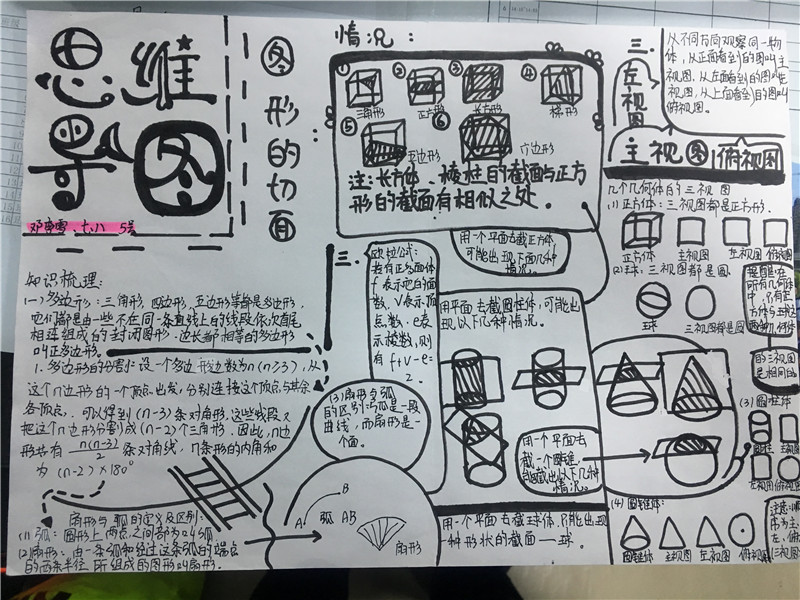 思维
导图
七、八 5号
图形的切面
情况：
① ② ③ ④
三角形 正方形 长方形 梯形
⑤ ⑥
五边形 六边形
注：长方体、棱柱的截面与正方
形的截面有相似之处。
用一个平面去截正方体，
可能出现下面几种
情况。
知识梳理：
(一)多边形：三角形、四边形、五边形等都是多边形，
它们都是由一些不在同一条直线上的线段依次首尾
相连组成的封闭图形。边长都相等的多边形
叫正多边形。
1.多边形的分割：设一个多边形边数为n(n≥3)，从
这个n边形的一个顶点出发，分别连接这个顶点与其余
各顶点，可以得到(n-3)条对角形，这些线段又
把这个n边形分割成(n-2)个三角形。因此，n边
形共有n(n-3)/2条对角线，n条形的内角和
为(n-2)×180°
扇形与弧的定义及区别：
(1)弧：圆形上两点之间部分叫弧
(2)扇形：由一条弧和经过这条弧的端点
的两条半径所组成的图形叫扇形。
A B
弧AB
扇形
(3)扇形与弧
的区别：弧是一段
曲线，而扇形是一
个面。
二.
欧拉公式：
若有正多面体
f表示它的面
数，V表示顶
点数，e表
示棱数，则
有f+V-e=
2。
用平面去截圆柱体，可能出
现以下几种情况。
用一个平面去
截一个圆锥
能截出以下几种
情况。
用一个平面去截球体，只能出现
一种形状的截面—球。
三.
左视图
主视图
俯视图
从不同方向观察同一物
体，从正面看到的图叫主
视图，从左面看到的图叫左
视图，从上面看到的图叫
俯视图。
几个几何体的三视图
(1)正方体：三视图都是正方形。
正方体 主视图 左视图 俯视图
(2)球：三视图都是圆
球 三视图都是圆
提醒：在
所有几何体
中，只有正
方体与球这
两种几何体
的三视图
是相同的
(3)圆柱体
圆柱 主视图
左视图 俯视图
(4)圆锥体：
圆锥体 主视图 左视图 俯视图